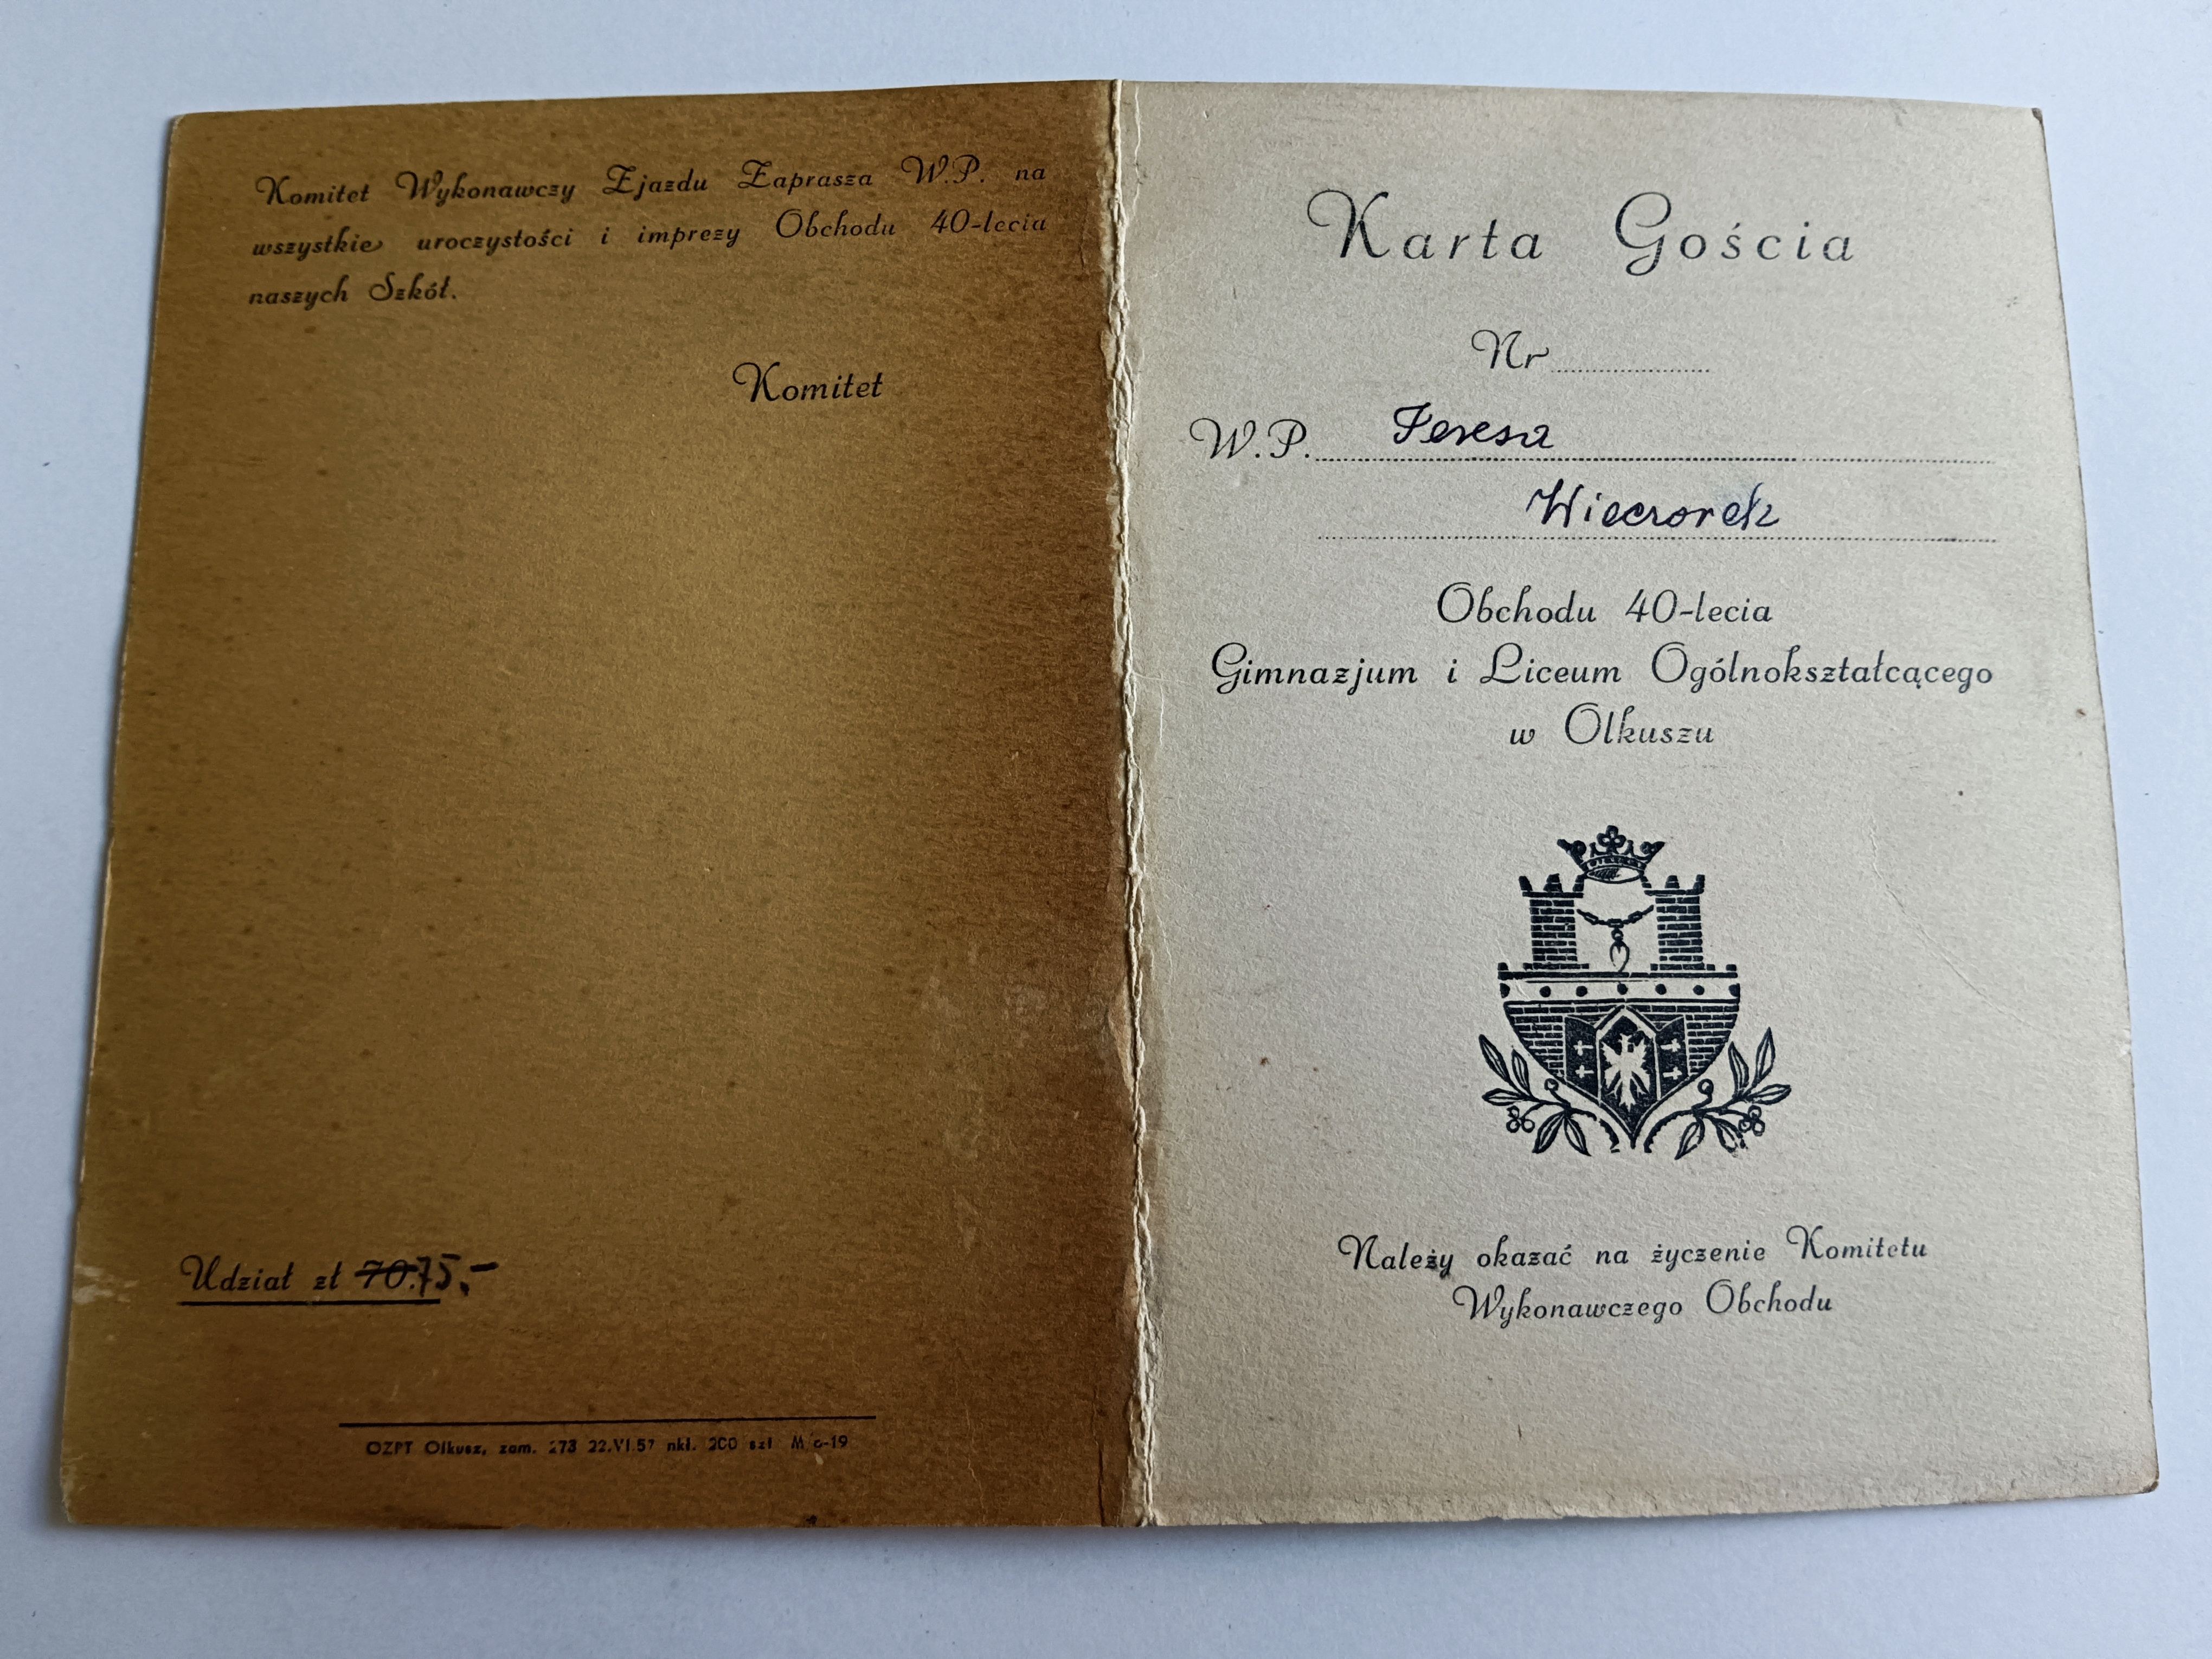 Komitet Wykonawczy Zjazdu Zaprasza W.P. na
wszystkie uroczystości i imprezy Obchodu 40-lecia
naszych Szkół.
Komitet
Udział zł 70.75,-
OZPT Olkusz, zam. 273 22.VI.57 nkł. 200 szt
Karta Gościa
Nr
W.P. Teresa
Wieczorek
Obchodu 40-lecia
Gimnazjum i Liceum Ogólnokształcącego
w Olkuszu
Należy okazać na życzenie Komitetu
Wykonawczego Obchodu